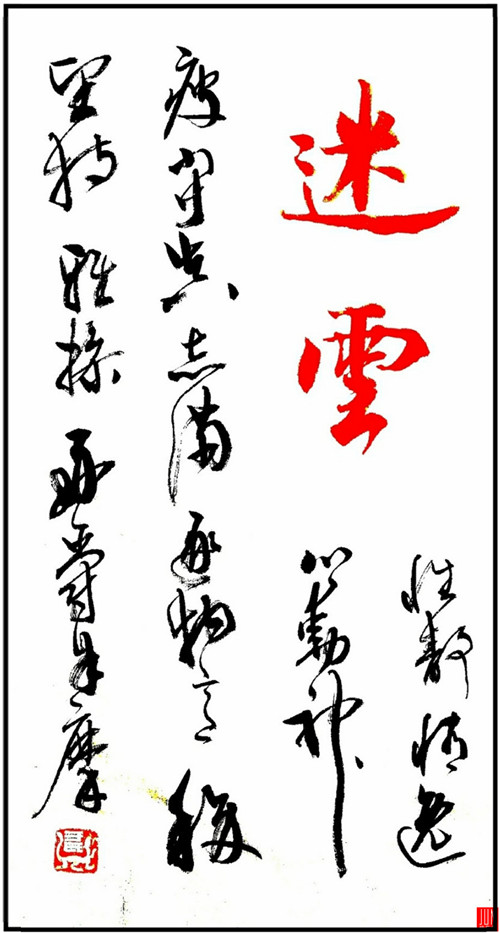 迷雲
性靜情逸
心動神
疲守真志滿逐物意移
堅持雅操好爵自縻